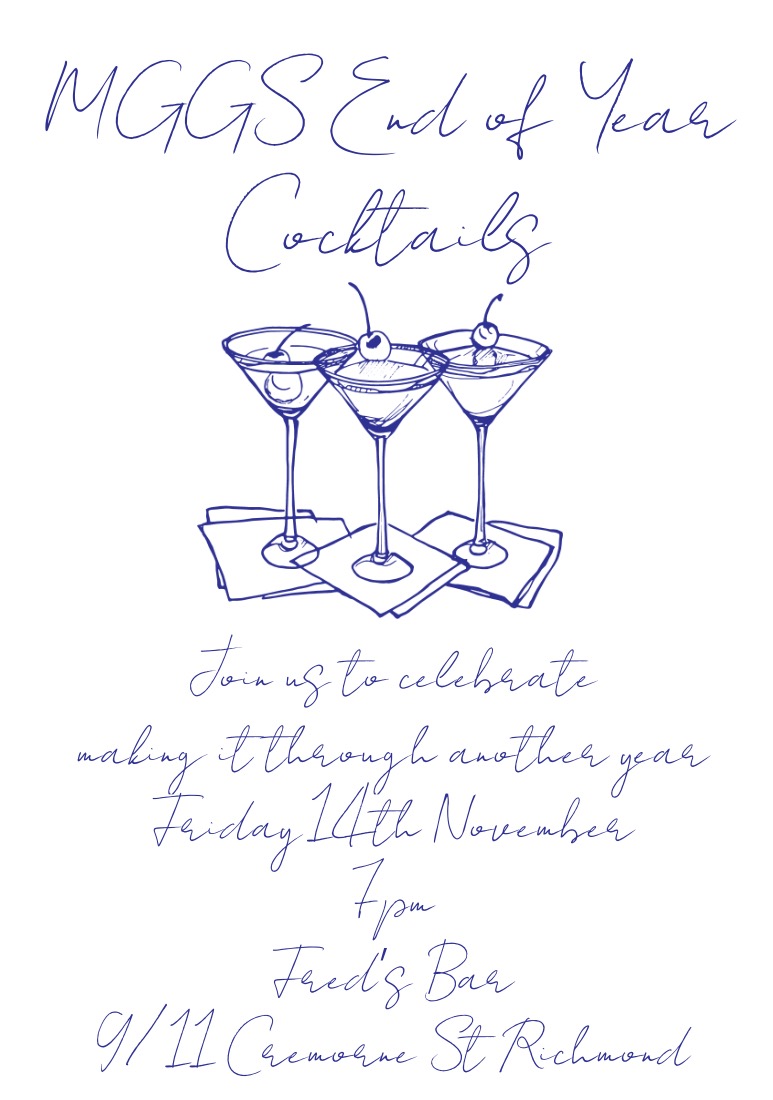 MGGS End of Year
Cocktails
Join us to celebrate
making it through another year
Friday 14th November
7pm
Fred's Bar
9/11 Cremorne St Richmond